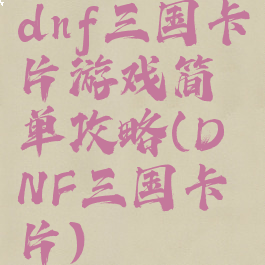 dnf三国卡
片游戏简
单攻略(D
NF三国卡
片)